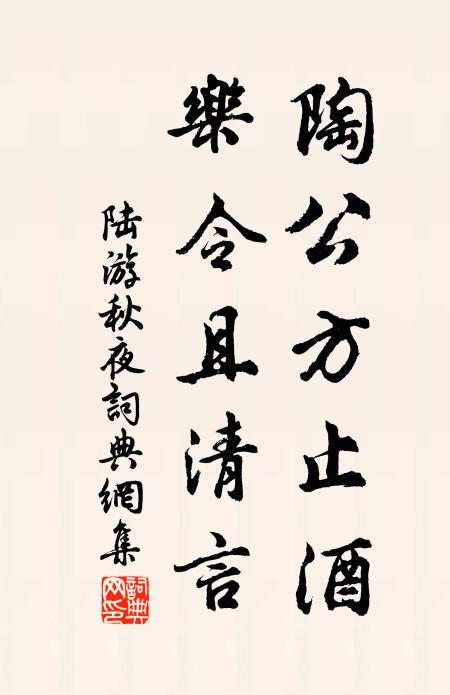 陶公方止酒
樂令且清言
陆游秋夜詞典網集
詞典網印